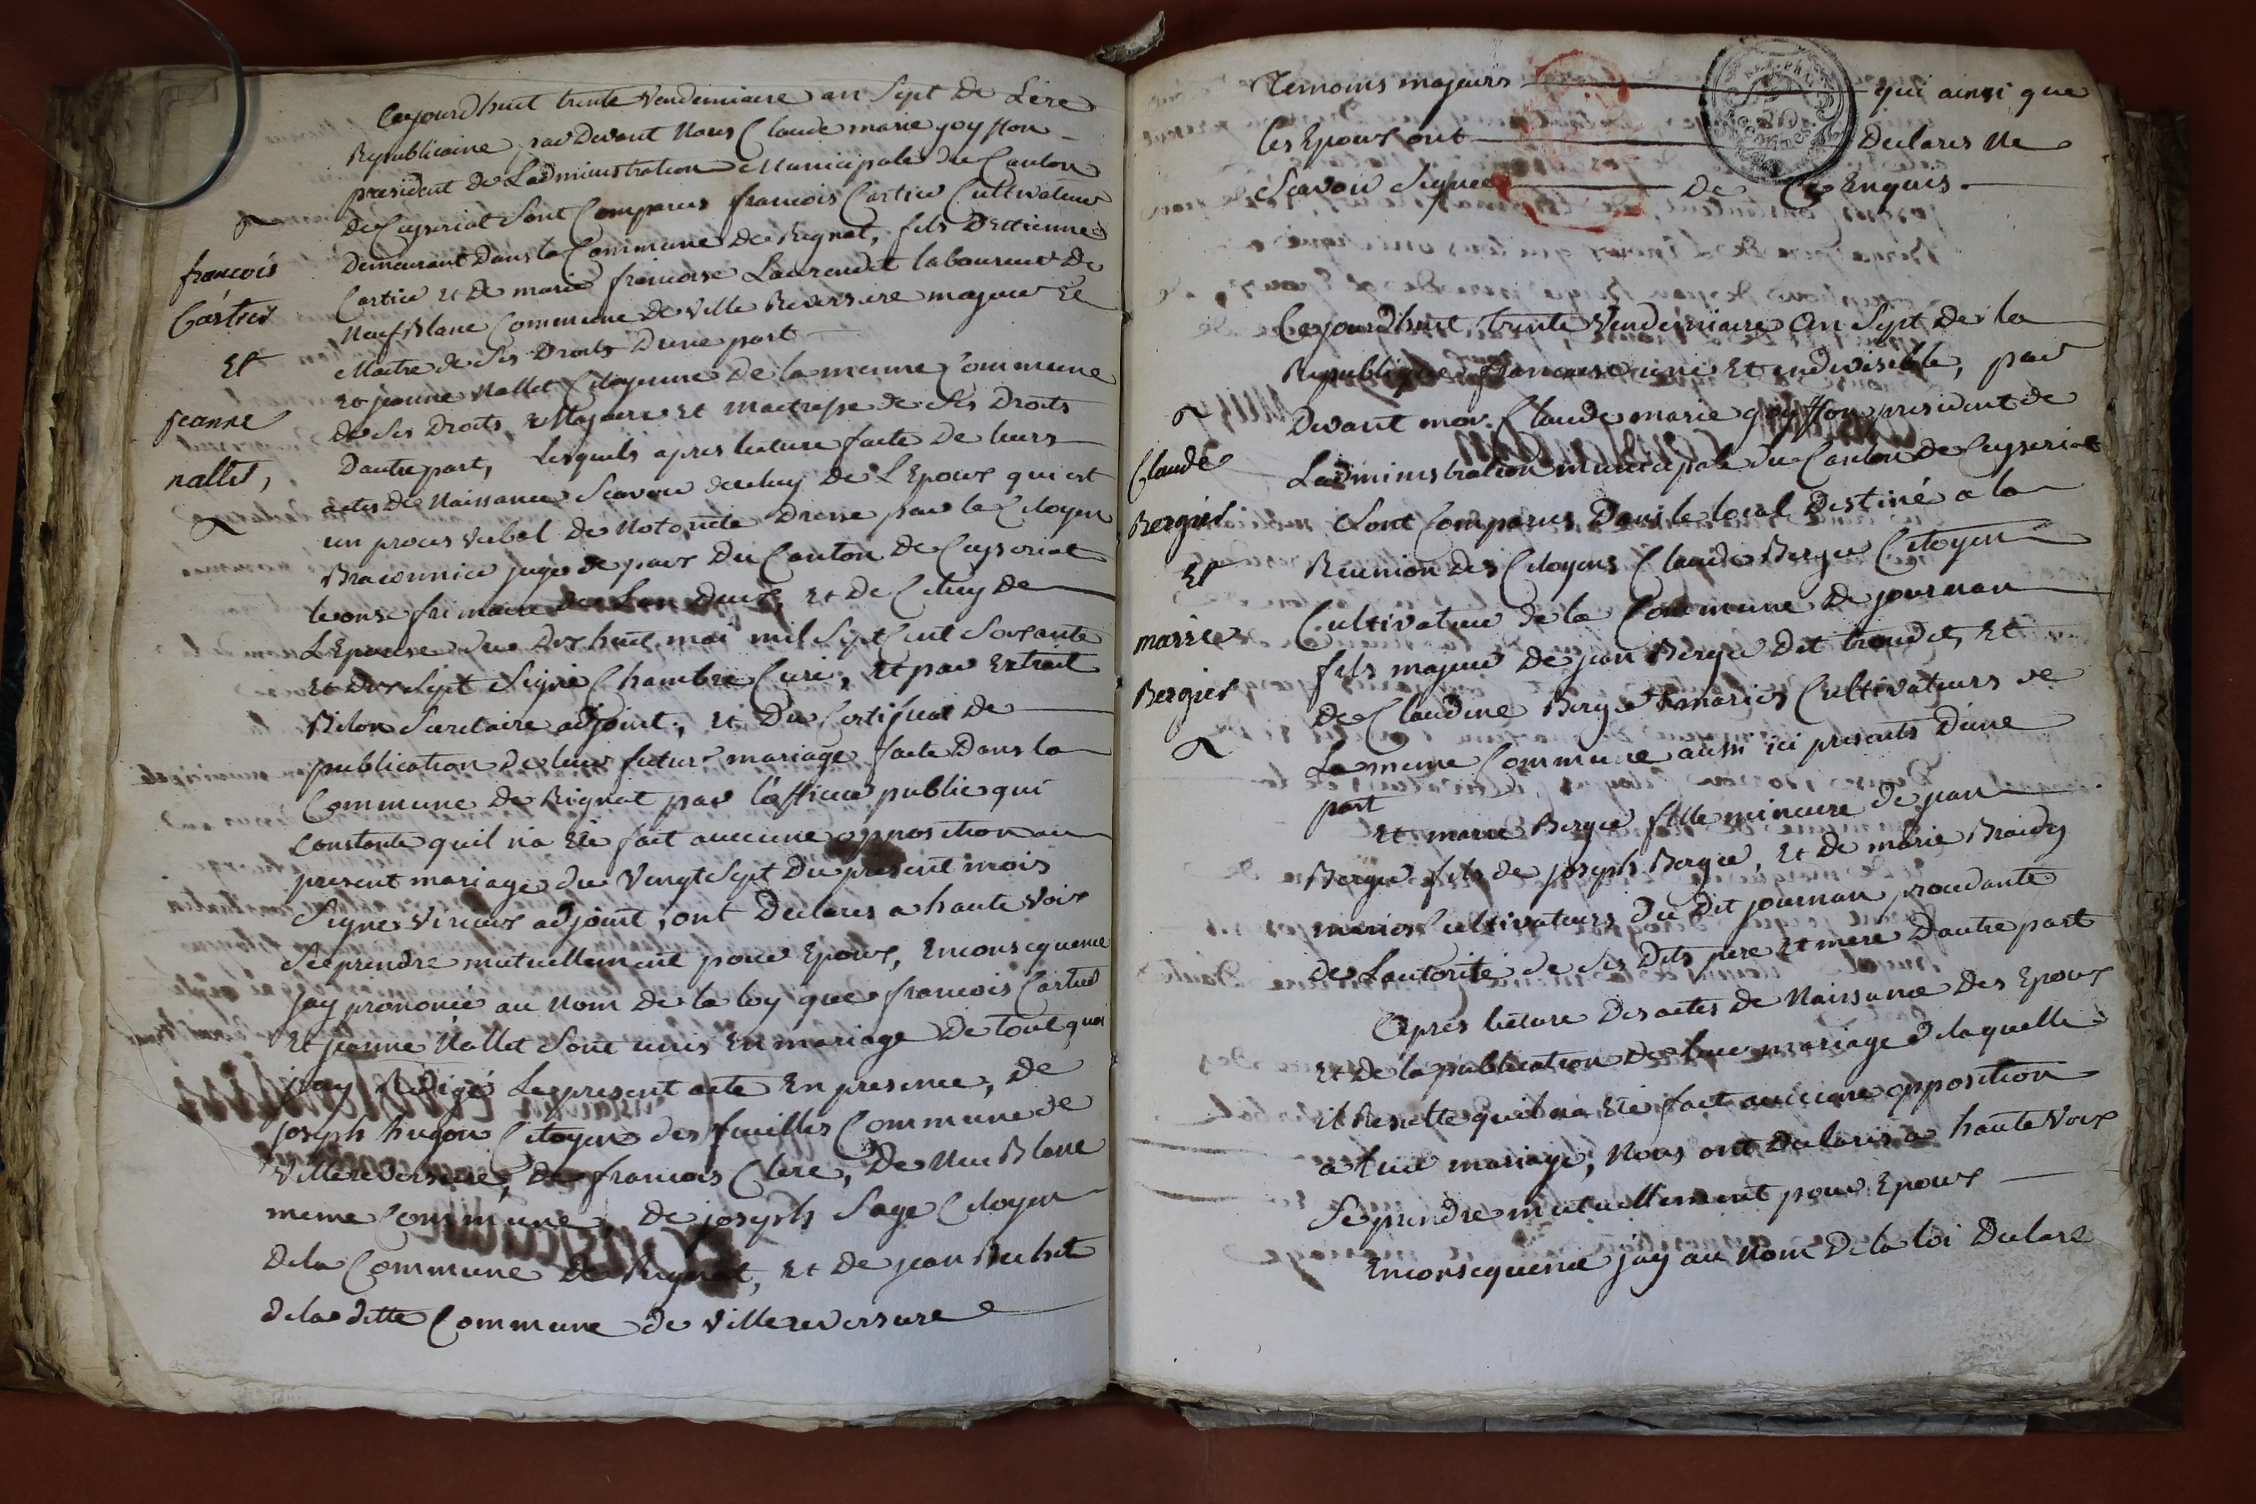 Cejourdhuit trente Vendemiaire an Sept de Lère
Republicaine par Devant Nous Claude marie goyffon
president de Ladministration Municipale du Canton
de Ceyseriat Sont Comparus francois Cartier Cultivateur
Demeurant Dans la Commune de Rignat, fils D'Ettienne
Cartier et de marie francoise Laurendet laboureur De
Neuf Blanc Commune de Ville Reversure majeur Et
Maitre de Ses Droits Dune part
francois
Cartier
Et
jeanne
nallet,
Et jeanne Nallet Citoyenne De la meme Commune
de Ses Droits, Majeure et maitresse de Ses Droits
Dautre part, Lesquels apres lecture faite De leurs
actes de Naissance Scavoir celuy De L'Epoux qui est
un proces verbal de Notoriété Dressé par le Citoyen
Braconnier juge de paix Du Canton De Ceyseriat
le onze frimaire de Lan Deux, et De Celuy de
L'Epouse du Dix huit mai mil Sept Cent Soixante
et dix Sept Signé Chambre Curé, et par Extrait
Bilon Secretaire adjoint, et Du Certificat De
publication de leur futur mariage faite Dans la
Commune de Rignat par l'officier public qui
constate quil n'a Eté fait aucune opposition au
present mariage du Vingt Sept Du present mois
Signé Virieux adjoint, ont Declarés a haute Voix
Se prendre mutuellement pour Epoux, En consequence
Jay prononcé au Nom de la loy que francois Cartier
Et jeanne Nallet Sont unis En mariage De tout quoi
jay Redigé Le present acte En presence, De
joseph hugon Citoyen des feuilles Commune de
Villereversure, De francois Clerc, De Neu Blanc
meme Commune, de joseph Sage Citoyen
Dela Commune De Rignat, et De jean
dela ditte Commune de Villereversure
Temoins majeurs qui ainsi que
les Epoux ont Declarés Ne
Scavoir Signer De Ce Enquis.
Cejourdhuit trente Vendemiaire An Sept De la
Republique francaise une Et indivisible, par
Devant moi Claude marie goyffon president de
Ladministration municipale du Canton de Ceyseriat
Claude
Bergier
Et
marie
Bergier
Sont Comparus Dans le local Destiné a la
Reunion des Citoyens Claude Bergier Citoyen
Cultivateur de la Commune De journan
fils majeur De jean Bergier Dit troudet, Et
De Claudine Bergier mariés Cultivateurs de
La meme Commune aussi ici presents D'une
part
Et marie Bergier fille mineure de jean
Bergier fils de joseph Bergier, Et de marie Braidy
mariés Cultivateurs du Dit journan procedante
de Lautorité de Ses Dits pere et mere Dautre part
Apres lecture Des actes de Naissance Des Epoux
Et De la publication de leur mariage De laquelle
il Resulte quil na Eté fait aucune opposition
a leur mariage, Nous ont Declarés a haute Voix
Se prendre mutuellement pour Epoux
En consequence jay au Nom Dela loi Declaré